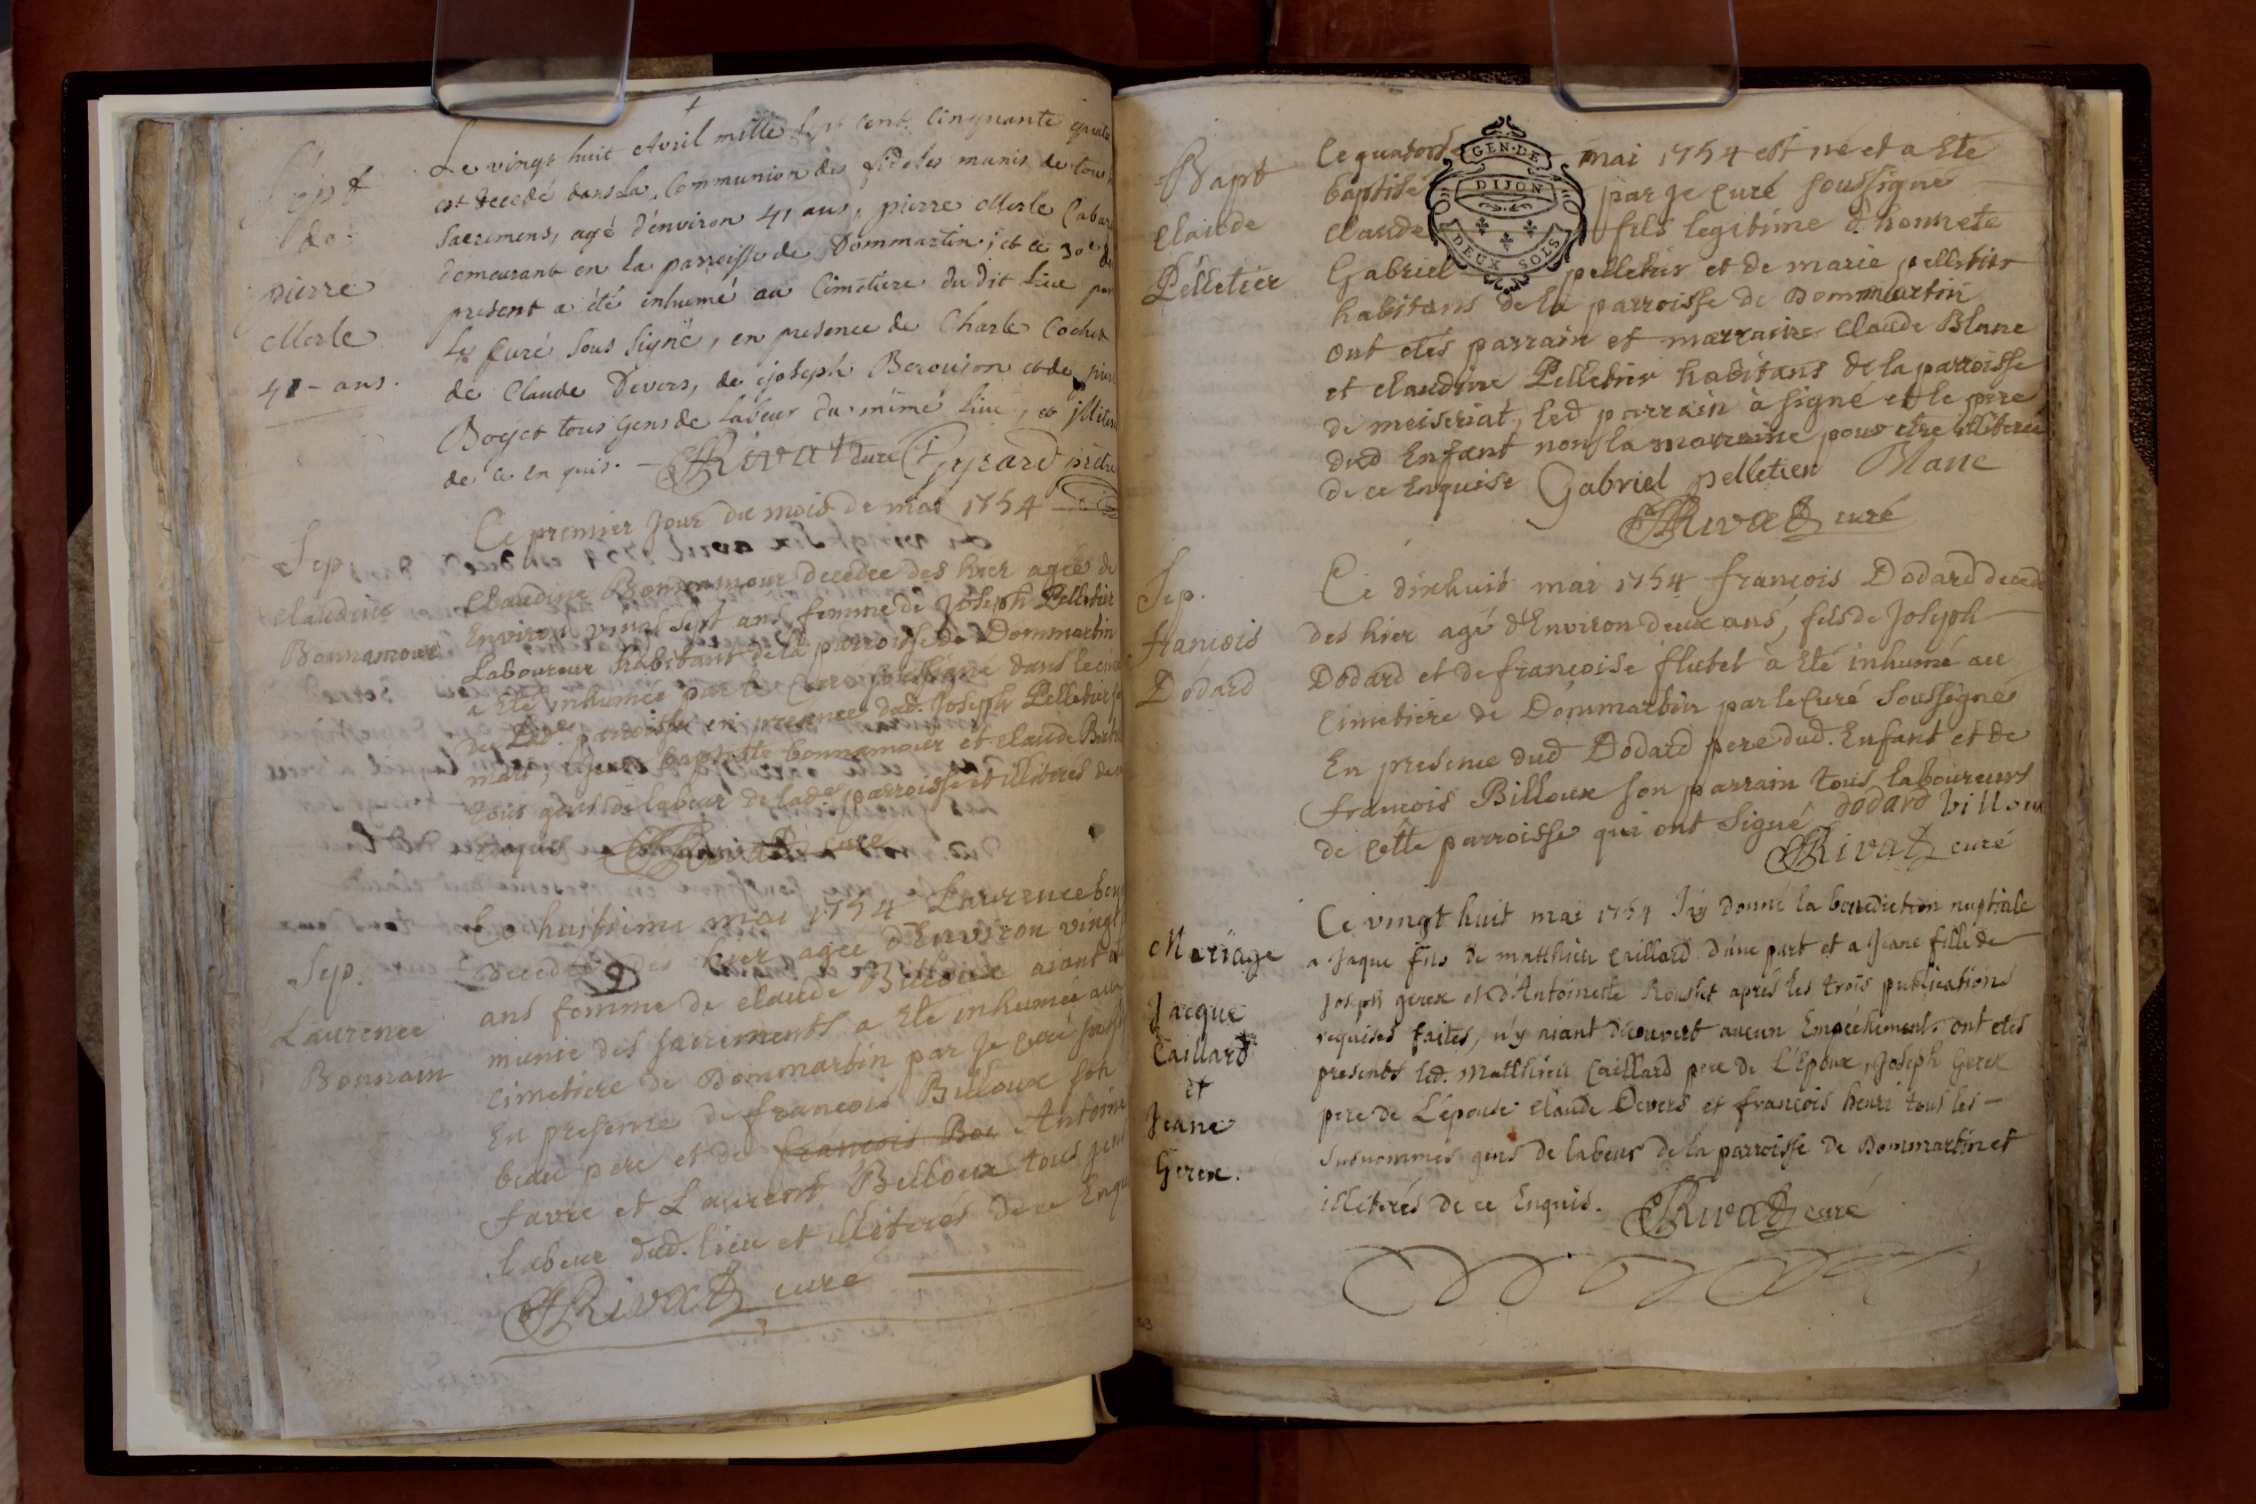 Le vingt huit Avril mille sept cent cinquante quatre
est decedé dans la Communion des fideles munis de tous
Sacremens, agé d'environ 41 ans, pierre Merle
demeurant en la parroisse de Dommartin, et ce 30e du
present a été inhumé au Cimetiere du dit Lieu par
le Curé sous signé, en presence de Charle Cochet
de Claude Devers, de joseph Berouion et de pierre
Boyet tous Gens de Labeur du même Lieu, et
de ce en quis. Rivat curé Gyrard prêtre
pierre
Merle
41 ans.
Ce premier Jour du mois de mai 1754
Sep.
Claudine
Bonnamour
Claudine Bonnamour decedée des hier agée de
Environ vingt sept ans, femme de Joseph Pelletier
Laboureur habitant de la parroisse de Dommartin
a Eté inhumée par le Curé soussigné dans le
de lade. parroisse en presence dud. Joseph Pelletier
mari, baptiste bonnamour et claude
tous gens de labeur de lade parroisse et illiterés de ce
Enquis Rivat curé
Ce huitieme mai 1754 Laurence
Sep.
Laurence
Bonnain
decedée des hier agée d'Environ vingt
ans femme de claude Billoux aiant été
munie des sacrements a Eté inhumée au
cimetiere de Dommartin par Je curé
En presence de francois Billoux son
beau pere et de francois Antoine
favre et Laurent Billoux tous gens
labeur dud. lieu et illiterés de ce Enquis
Rivat curé
Bapt
Claude
Pelletier
Ce mai 1754 est né et a Eté
baptisé par Je curé soussigné
claude fils legitime d'honnete
Gabriel pelletier et de marie pelletier
habitans de la parroisse de Dommartin
ont etés parrain et marraine Claude Blanc
et claudine Pelletier habitans de la parroisse
de meiseriat, led parrain à signé et le pere
dud Enfant non la marraine pour etre illiterée
de ce Enquise Gabriel pelletier Blanc
Rivat curé
GEN·DE
DIJON
DEUX SOLS
Sep.
françois
Dodard
Ce dixhuit mai 1754 françois Dodard decedé
des hier agé d'Environ deux ans, fils de Joseph
Dodard et de francoise flutet a Eté inhumé au
cimetiere de Dommartin par le Curé Soussigné
En presence dud Dodard pere dud. Enfant et de
francois Billoux son parrain tous laboureurs
de cette parroisse qui ont signé dodard billoux
Rivat curé
Mariage
Jacque
Caillard
et
Jeane
Gerex.
Ce vingt huit mai 1754 Jay donné la benediction nuptiale
a Jaque fils de matthieu Caillard d'une part et a Jeane fille de
Joseph gerex et d'Antoinette Rousset aprés les trois publications
requises faites, n'y aiant découvert aucun Empechement. ont etés
presents led. Matthieu Caillard pere de L'Epoux, Joseph Gerex
pere de L'épouse Claude Devers et françois henri tous les
susnommés gens de labeur de la parroisse de Dommartin et
illiterés de ce Enquis. Rivat curé